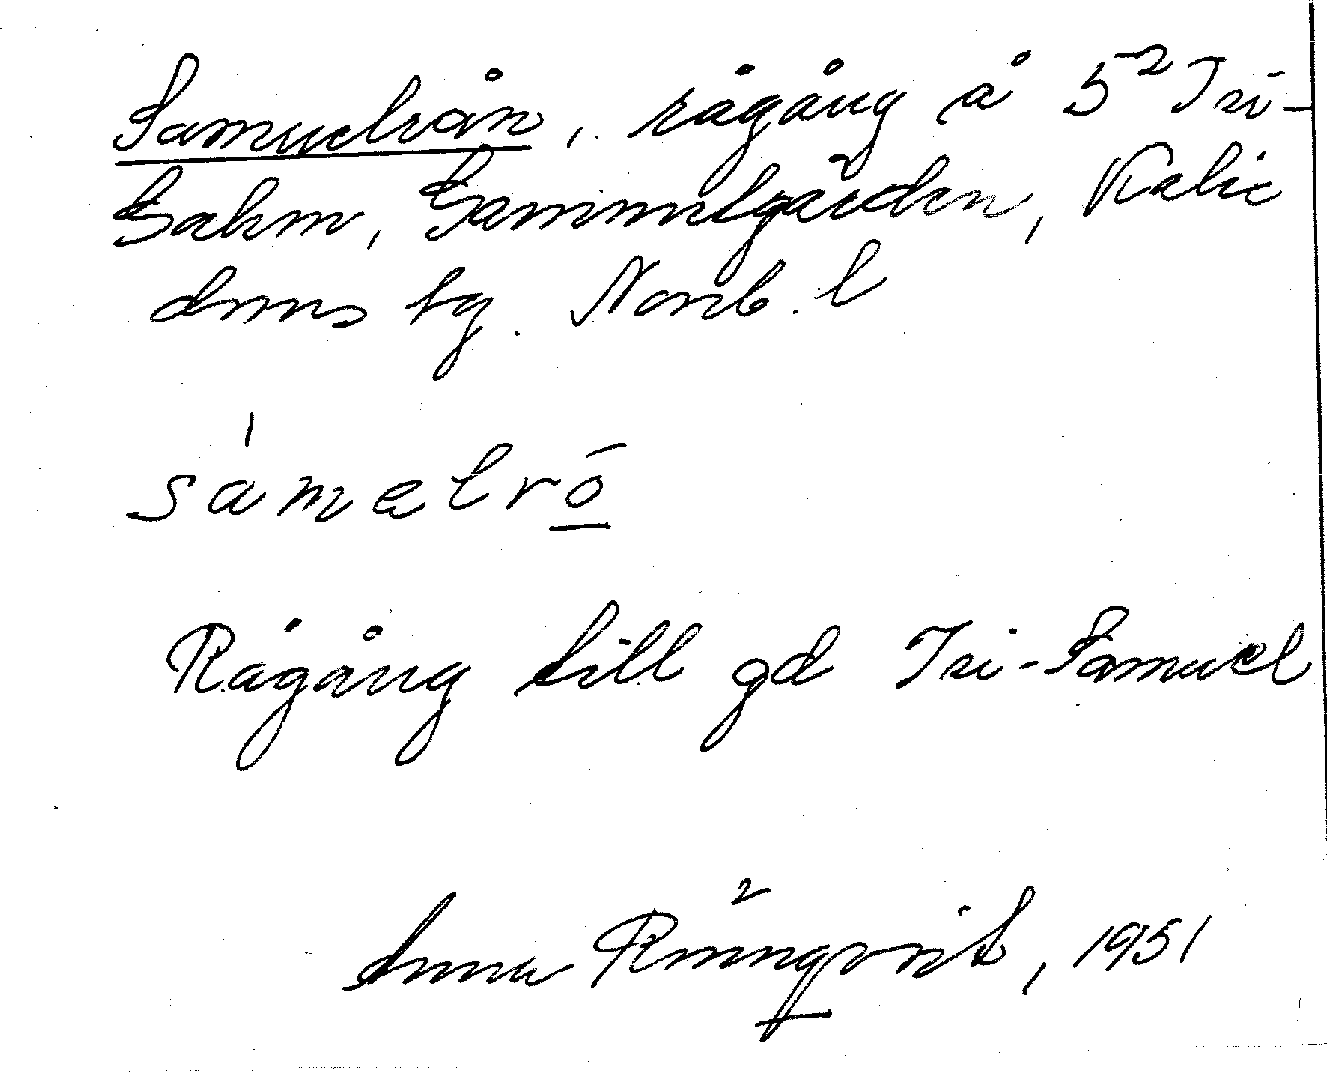 Samuelrån, rågång å 5² Tri-
Sahm, Gammelgården, Kalix
dnns by. Norrb. l
sámelrō̲
Rågång till gd Tri-Samuel
Anna Rönnqvist, 1951